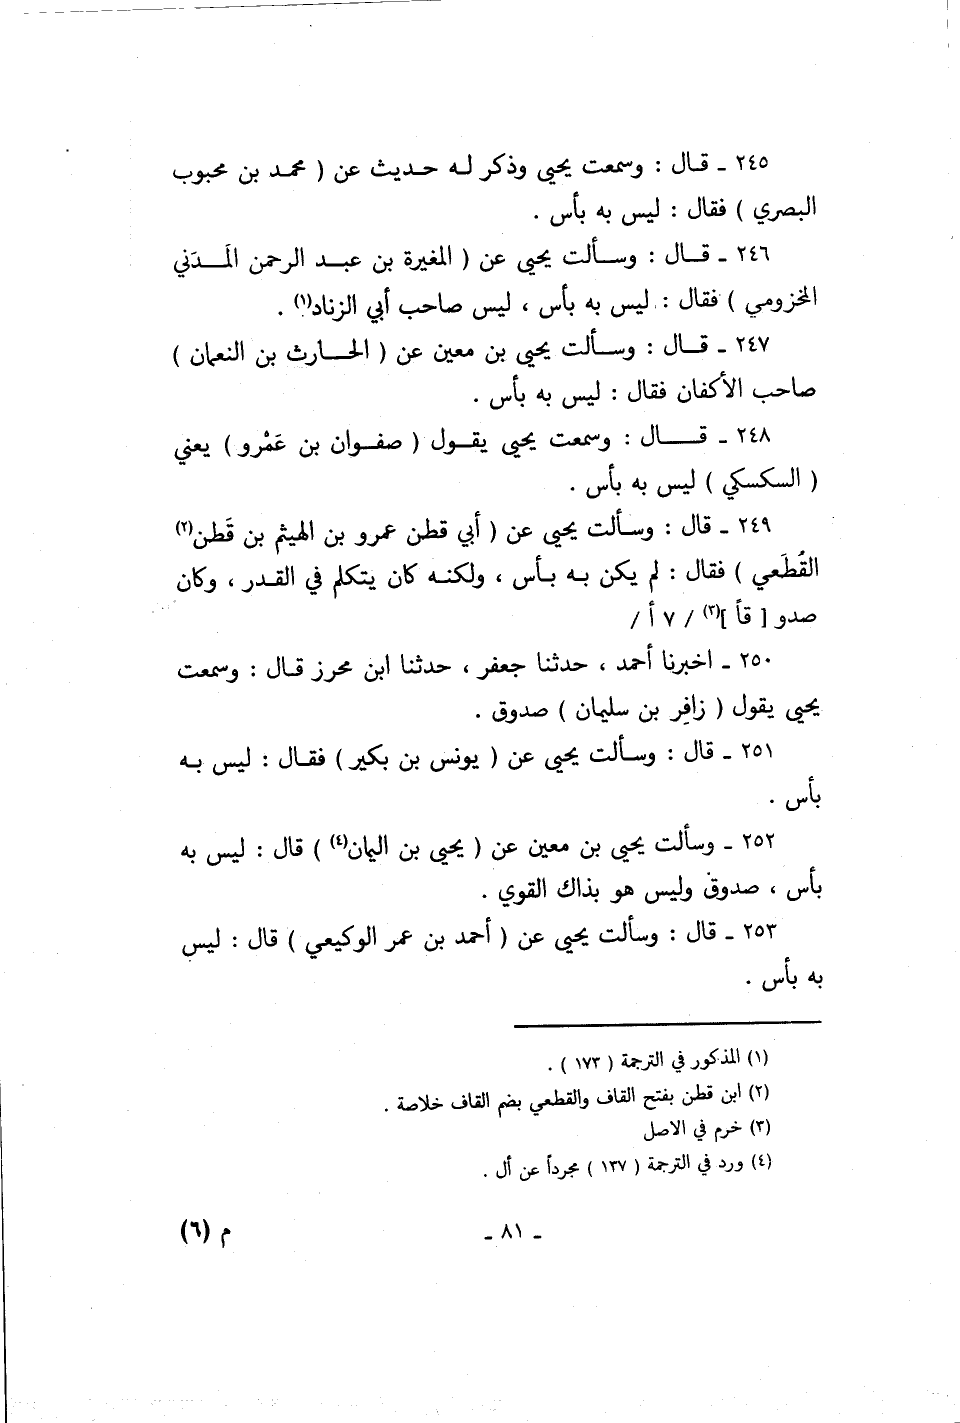 ٢٤٥ ـ قـال : وسمعت يحيى وذكر لـه حـديث عن ( محمـد بن محبوب
البصري ) فقال : ليس به بأس .
٢٤٦ ـ قـال : وسـألت يحيى عن ( المغيرة بن عبـد الرحمن المَـدَني
المخزومي ) فقال : ليس به بأس ، ليس صاحب أبي الزناد(١) .
٢٤٧ ـ قـال : وسـألت يحيى بن معين عن ( الحـارث بن النعمان )
صاحب الأكفان فقال : ليس به بأس .
٢٤٨ ـ قـال : وسمعت يحيى يقـول ( صفـوان بن عَمْرو ) يعني
( السكسكي ) ليس به بأس .
٢٤٩ ـ قال : وسـألت يحيى عن ( أبي قطن عمرو بن الهيثم بن قَطن(٢)
القُطَعي ) فقال : لم يكن بـه بـأس ، ولكنـه كان يتكلم في القـدر ، وكان
صدو [ قاً ](٣) / ٧ أ /
٢٥٠ ـ اخبرنا أحمد ، حدثنا جعفر ، حدثنا ابن محرز قـال : وسمعت
يحيى يقول ( زافِر بن سليمان ) صدوق .
٢٥١ ـ قال : وسـألت يحيى عن ( يونس بن بكير ) فقـال : ليس بـه
بأس .
٢٥٢ ـ وسألت يحيى بن معين عن ( يحيى بن اليمان(٤) ) قال : ليس به
بأس ، صدوق وليس هو بذاك القوي .
٢٥٣ ـ قال : وسألت يحيى عن ( أحمد بن عمر الوكيعي ) قال : ليس
به بأس .
(١) المذكور في الترجمة ( ١٧٣ ) .
(٢) ابن قطن بفتح القاف والقطعي بضم القاف خلاصة .
(٣) خرم في الاصل
(٤) ورد في الترجمة ( ١٣٧ ) مجرداً عن أل .
ـ ٨١ ـ
م (٦)